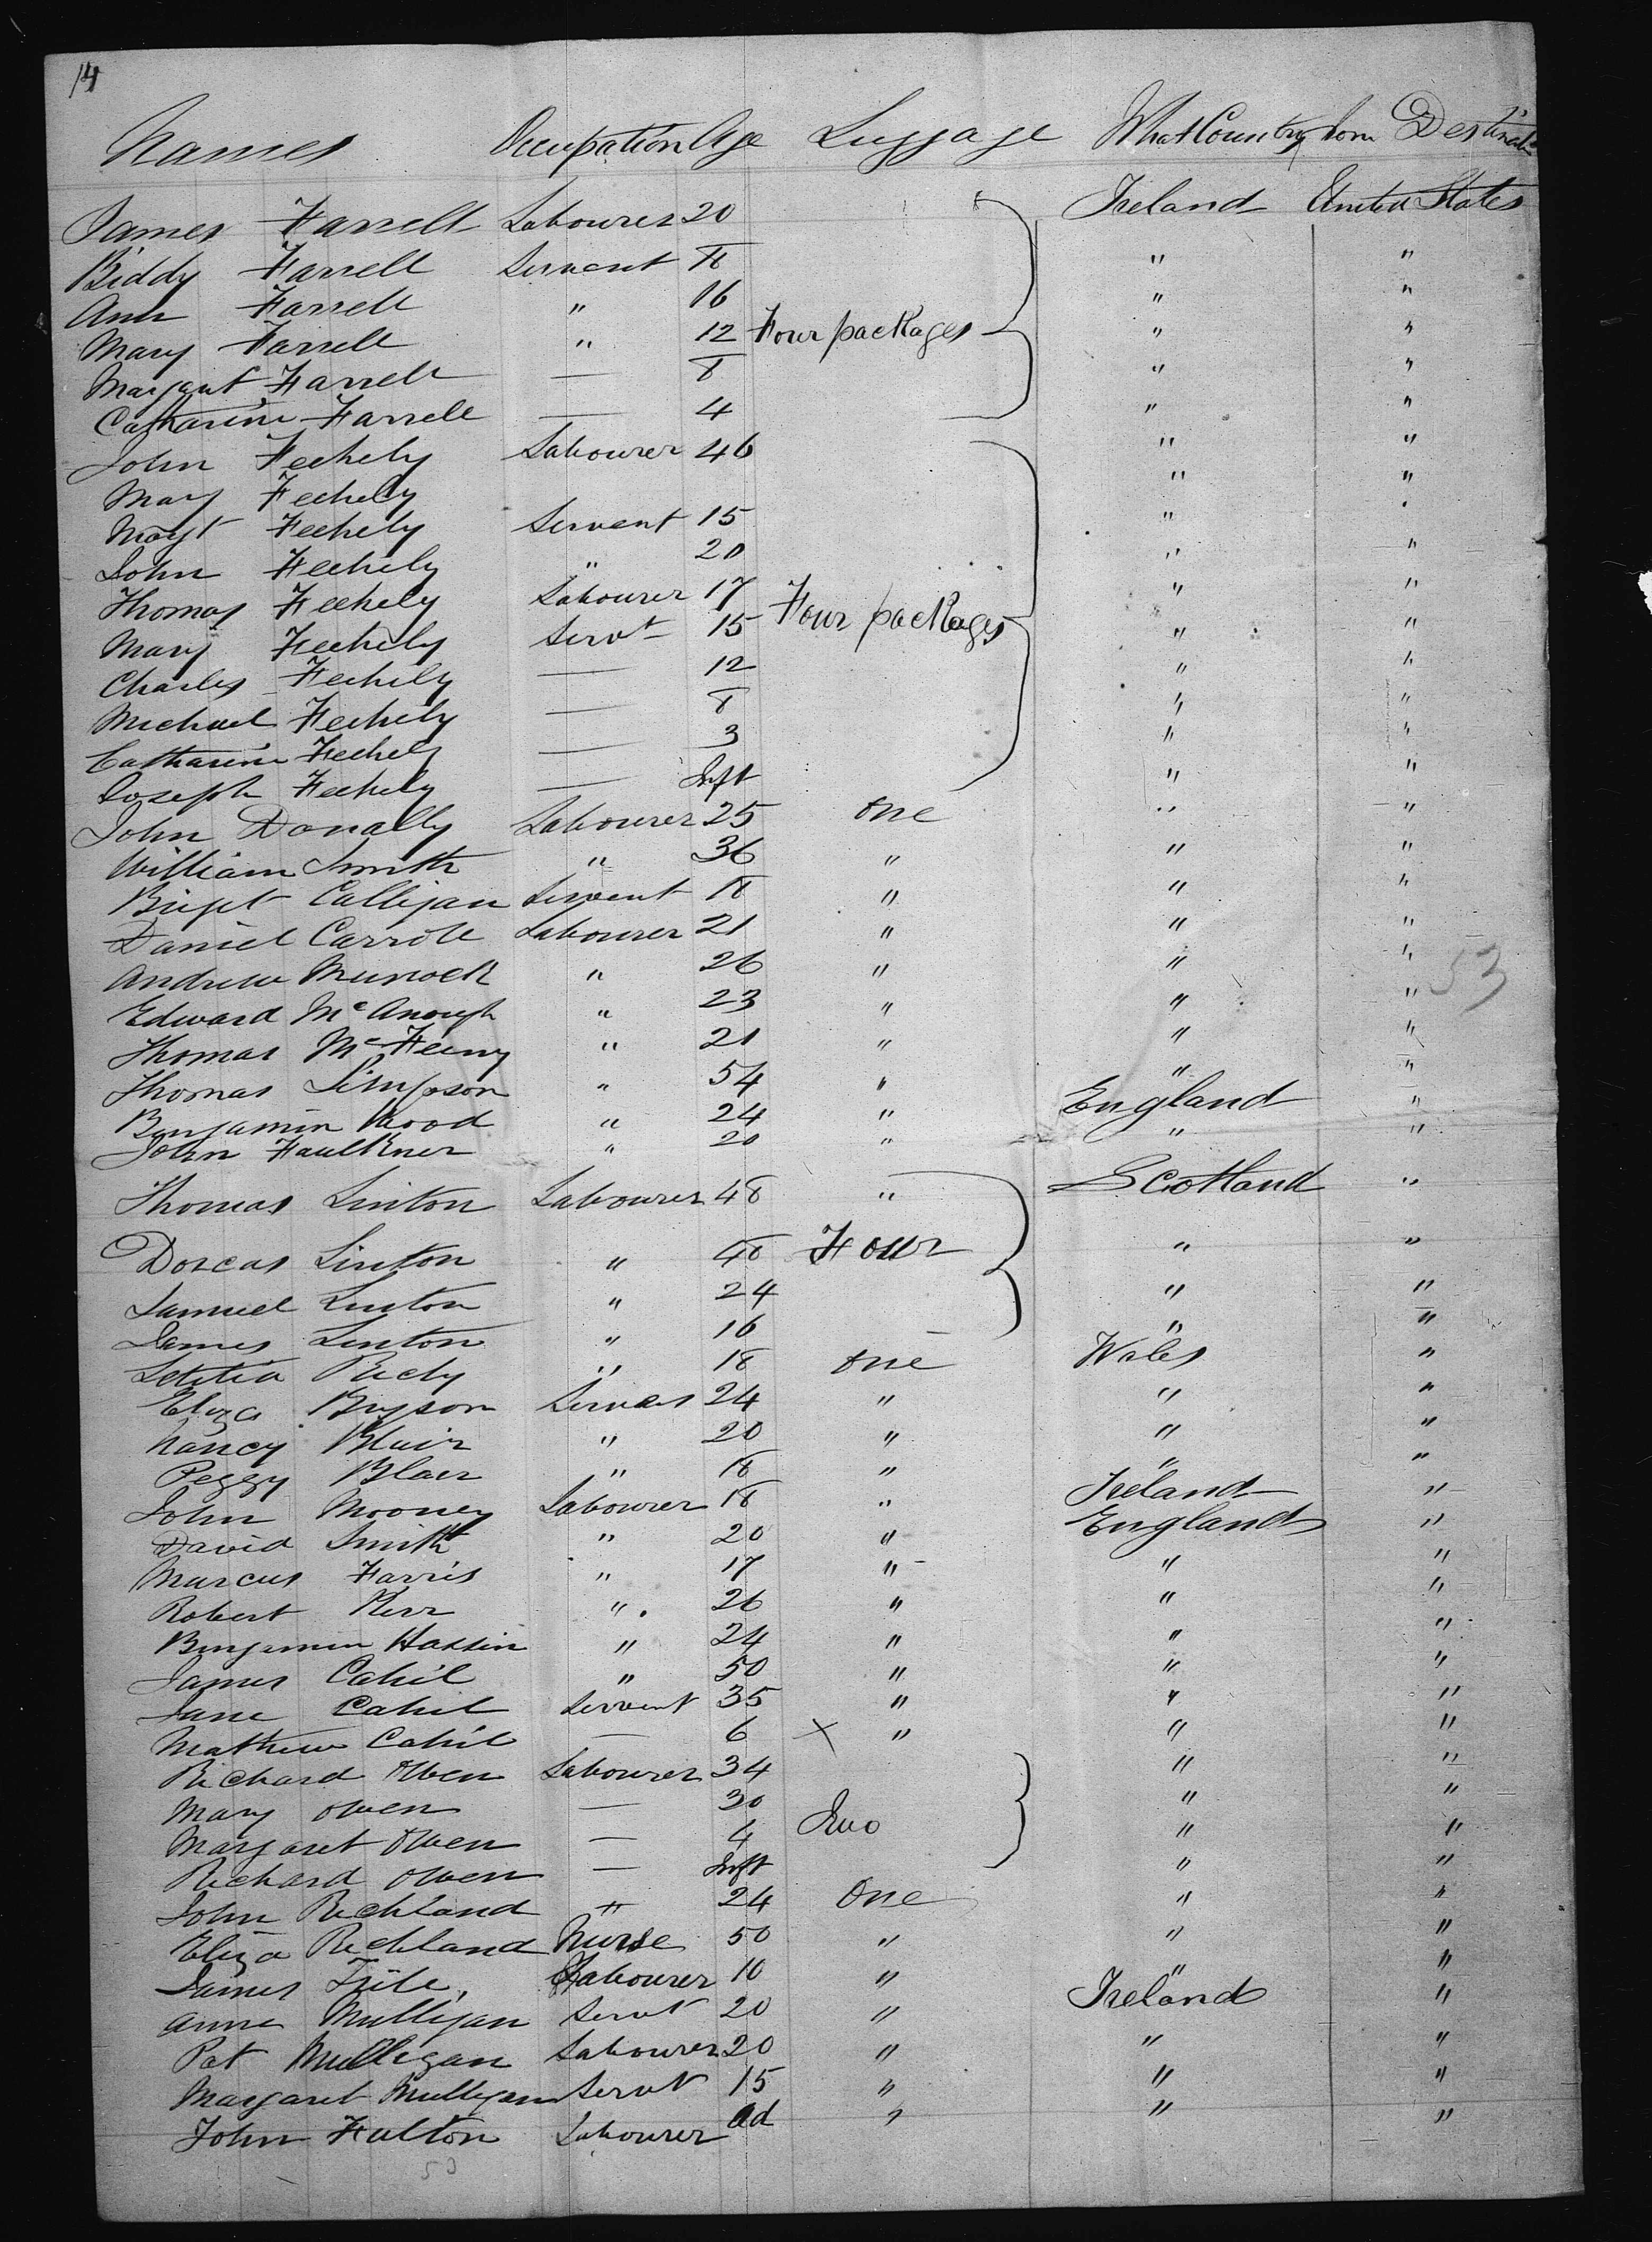 14
Names Occupation Age Luggage What Country from Destination
James Farrell Labourer 20 Ireland United States
Biddy Farrell Servent 18 " "
Ann Farrell " 16 " "
Mary Farrell " 12 Four packages " "
Margaret Farrell — 8 " "
Catharine Farrell — 4 " "
John Feehely Labourer 46 " "
Mary Feehely " "
Margt Feehely Servent 15 " "
John Feehely " 20 " "
Thomas Feehely Labourer 17 Four packages " "
Mary Feehely Servt 15 " "
Charles Feehely — 12 " "
Michael Feehely — 8 " "
Catharine Feehely — 3 " "
Joseph Feehely — Inft " "
John Donally Labourer 25 one " "
William Smith " 36 " " "
Briget Calligan Servent 18 " " "
Daniel Carrole Labourer 21 " " "
Andrew " 26 " " "
Edward McAnough " 23 " " " 53
Thomas " 21 " " "
Thomas Simpson " 54 " " "
Benjamin Wood " 24 " England "
John Faulkner " 20 " " "
Thomas Linton Labourer 48 " Scotland "
Dorcas Linton " 48 Four " "
Samuel Linton " 24 " "
James Linton " 16 — " "
Letitia " 18 one Wales "
Eliza Bryson 24 " " "
Nancy Blair " 20 " " "
Peggy Blair " 18 " " "
John Mooney Labourer 18 " Ireland "
David Smith " 20 " England "
Marcus Farris " 17 " " "
Robert Kerr " 26 " " "
Benjamin " 24 " " "
James Cahil " 50 " " "
Jane Cahil Servent 35 " " "
Mathew Cahil — 6 × " " "
Richard Owen Labourer 34 " "
Mary Owen — 30 " "
Margaret Owen — 4 Two " "
Richard Owen — Inft " "
John Richland " 24 One " "
Eliza Richland Nurse 50 " " "
James Labourer 10 " " "
Anne Mulligan Servt 20 " Ireland "
Pat Mulligan Labourer 20 " " "
Margaret Mulligan Servt 15 " " "
John Fulton Labourer ad " " "
53